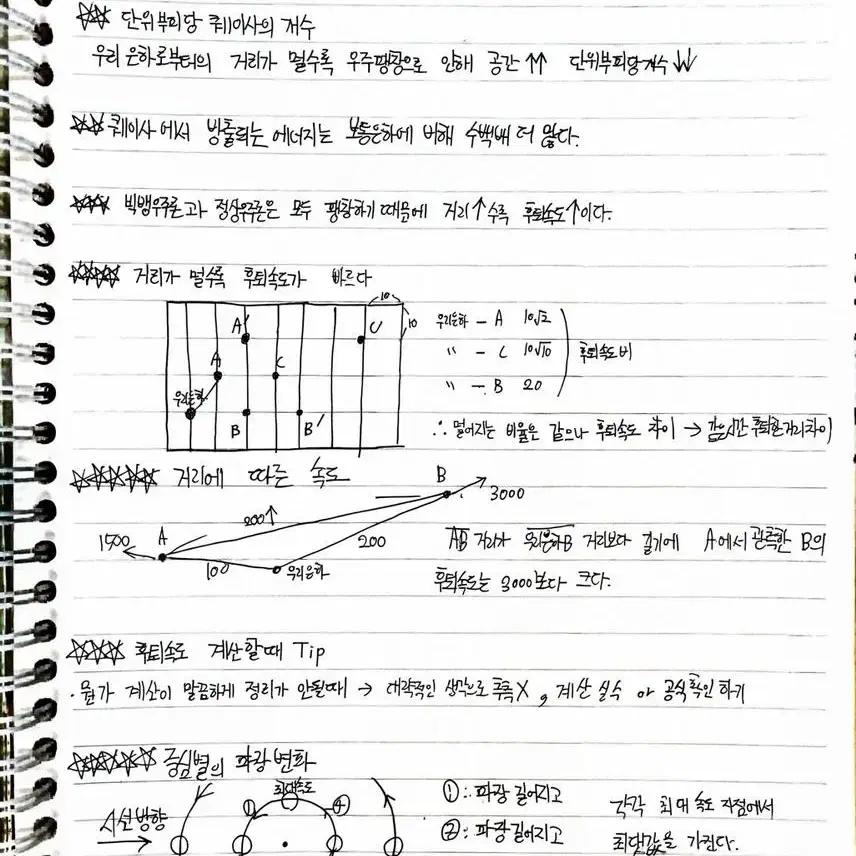 ☆☆ 단위부피당 퀘이사의 개수
우리 은하로부터의 거리가 멀수록 우주팽창으로 인해 공간↑↑ 단위부피당개수↓↓
☆☆ 퀘이사에서 방출되는 에너지는 보통은하에 비해 수백배 더 많다.
☆☆☆ 빅뱅우주론과 정상우주론은 모두 팽창하기 때문에 거리↑수록 후퇴속도↑이다.
☆☆☆☆ 거리가 멀수록 후퇴속도가 빠르다
10
10
A'
C'
A
C
우리은하
B
B'
우리은하 - A 10√2
〃 - C 10√10
〃 - B 20
후퇴속도비
∴ 멀어지는 비율은 같으나 후퇴속도 차이 → 같은시간 후퇴한거리차이
☆☆☆☆☆ 거리에 따른 속도
B
3000
200↑
1500
A
200
100
우리은하
AB 거리가 우리은하B 거리보다 길기에 A에서 관측한 B의
후퇴속도는 3000보다 크다.
☆☆☆☆ 후퇴속도 계산할때 Tip
· 뭔가 계산이 말끔하게 정리가 안될때 → 대략적인 생각으로 추측X, 계산 실수 or 공식확인하기
☆☆☆☆☆ 중심별의 파장변화
시선방향
최대속도
①
④
①: 파장 길어지고
②: 파장길어지고
각각 최대 속도 지점에서
최댓값을 가진다.